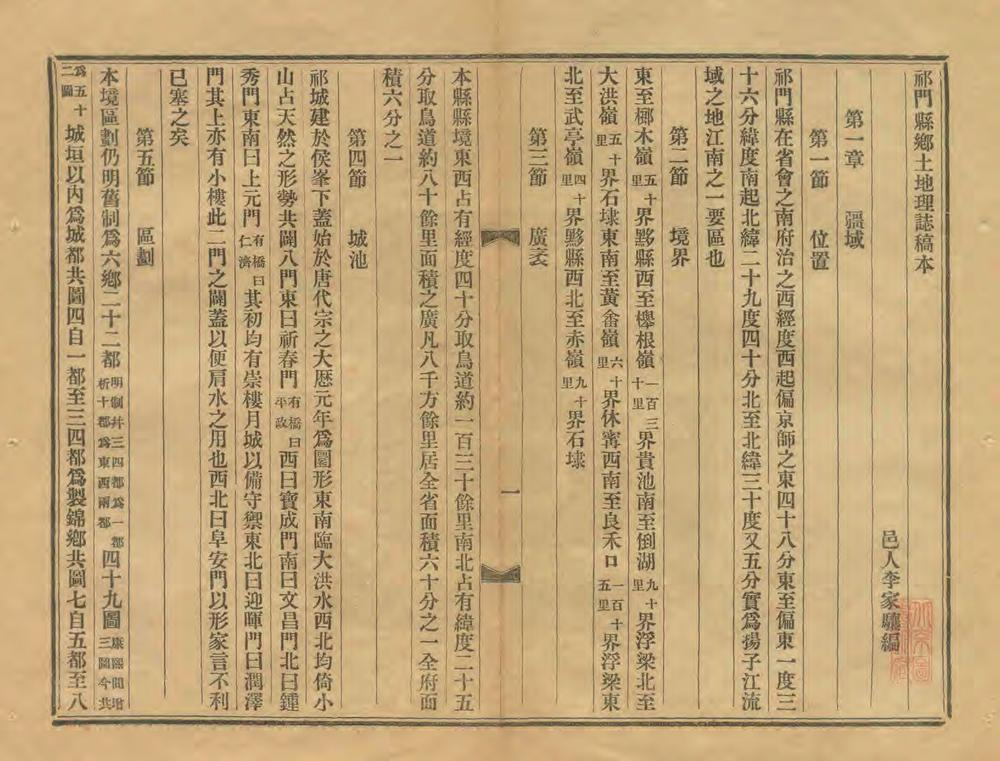 祁門縣鄉土地理誌稿本
邑人李家驤編
第一章 疆域
第一節 位置
祁門縣在省會之南府治之西經度西起偏京師之東四十八分東至偏東一度三
十六分緯度南起北緯二十九度四十分北至北緯三十度又五分實爲揚子江流
域之地江南之一要區也
第二節 境界
東至榔木嶺五十里界黟縣西至櫸根嶺一百三十里界貴池南至倒湖九十里界浮梁北至
大洪嶺五十里界石埭東南至黃畲嶺六十里界休寗西南至良禾口一百十五里界浮梁東
北至武亭嶺四十里界黟縣西北至赤嶺九十里界石埭
第三節 廣袤
本縣縣境東西占有經度四十分取鳥道約一百三十餘里南北占有緯度二十五
分取鳥道約八十餘里面積之廣凡八千方餘里居全省面積六十分之一全府面
積六分之一
第四節 城池
祁城建於侯峯下蓋始於唐代宗之大厯元年爲圜形東南臨大洪水西北均倚小
山占天然之形勢共闢八門東曰祈春門有橋曰平政西曰寶成門南曰文昌門北曰鍾
秀門東南曰上元門有橋曰仁濟其初均有崇樓月城以備守禦東北曰迎暉門曰潤澤
門其上亦有小樓此二門之闢蓋以便肩水之用也西北曰阜安門以形家言不利
已塞之矣
第五節 區劃
本境區劃仍明舊制爲六鄉二十二都明制幷三四都爲一都析十都爲東西兩都四十九圖康熙間增三圖今共
爲五十二圖城垣以內爲城都共圖四自一都至三四都爲製錦鄉共圖七自五都至八
一